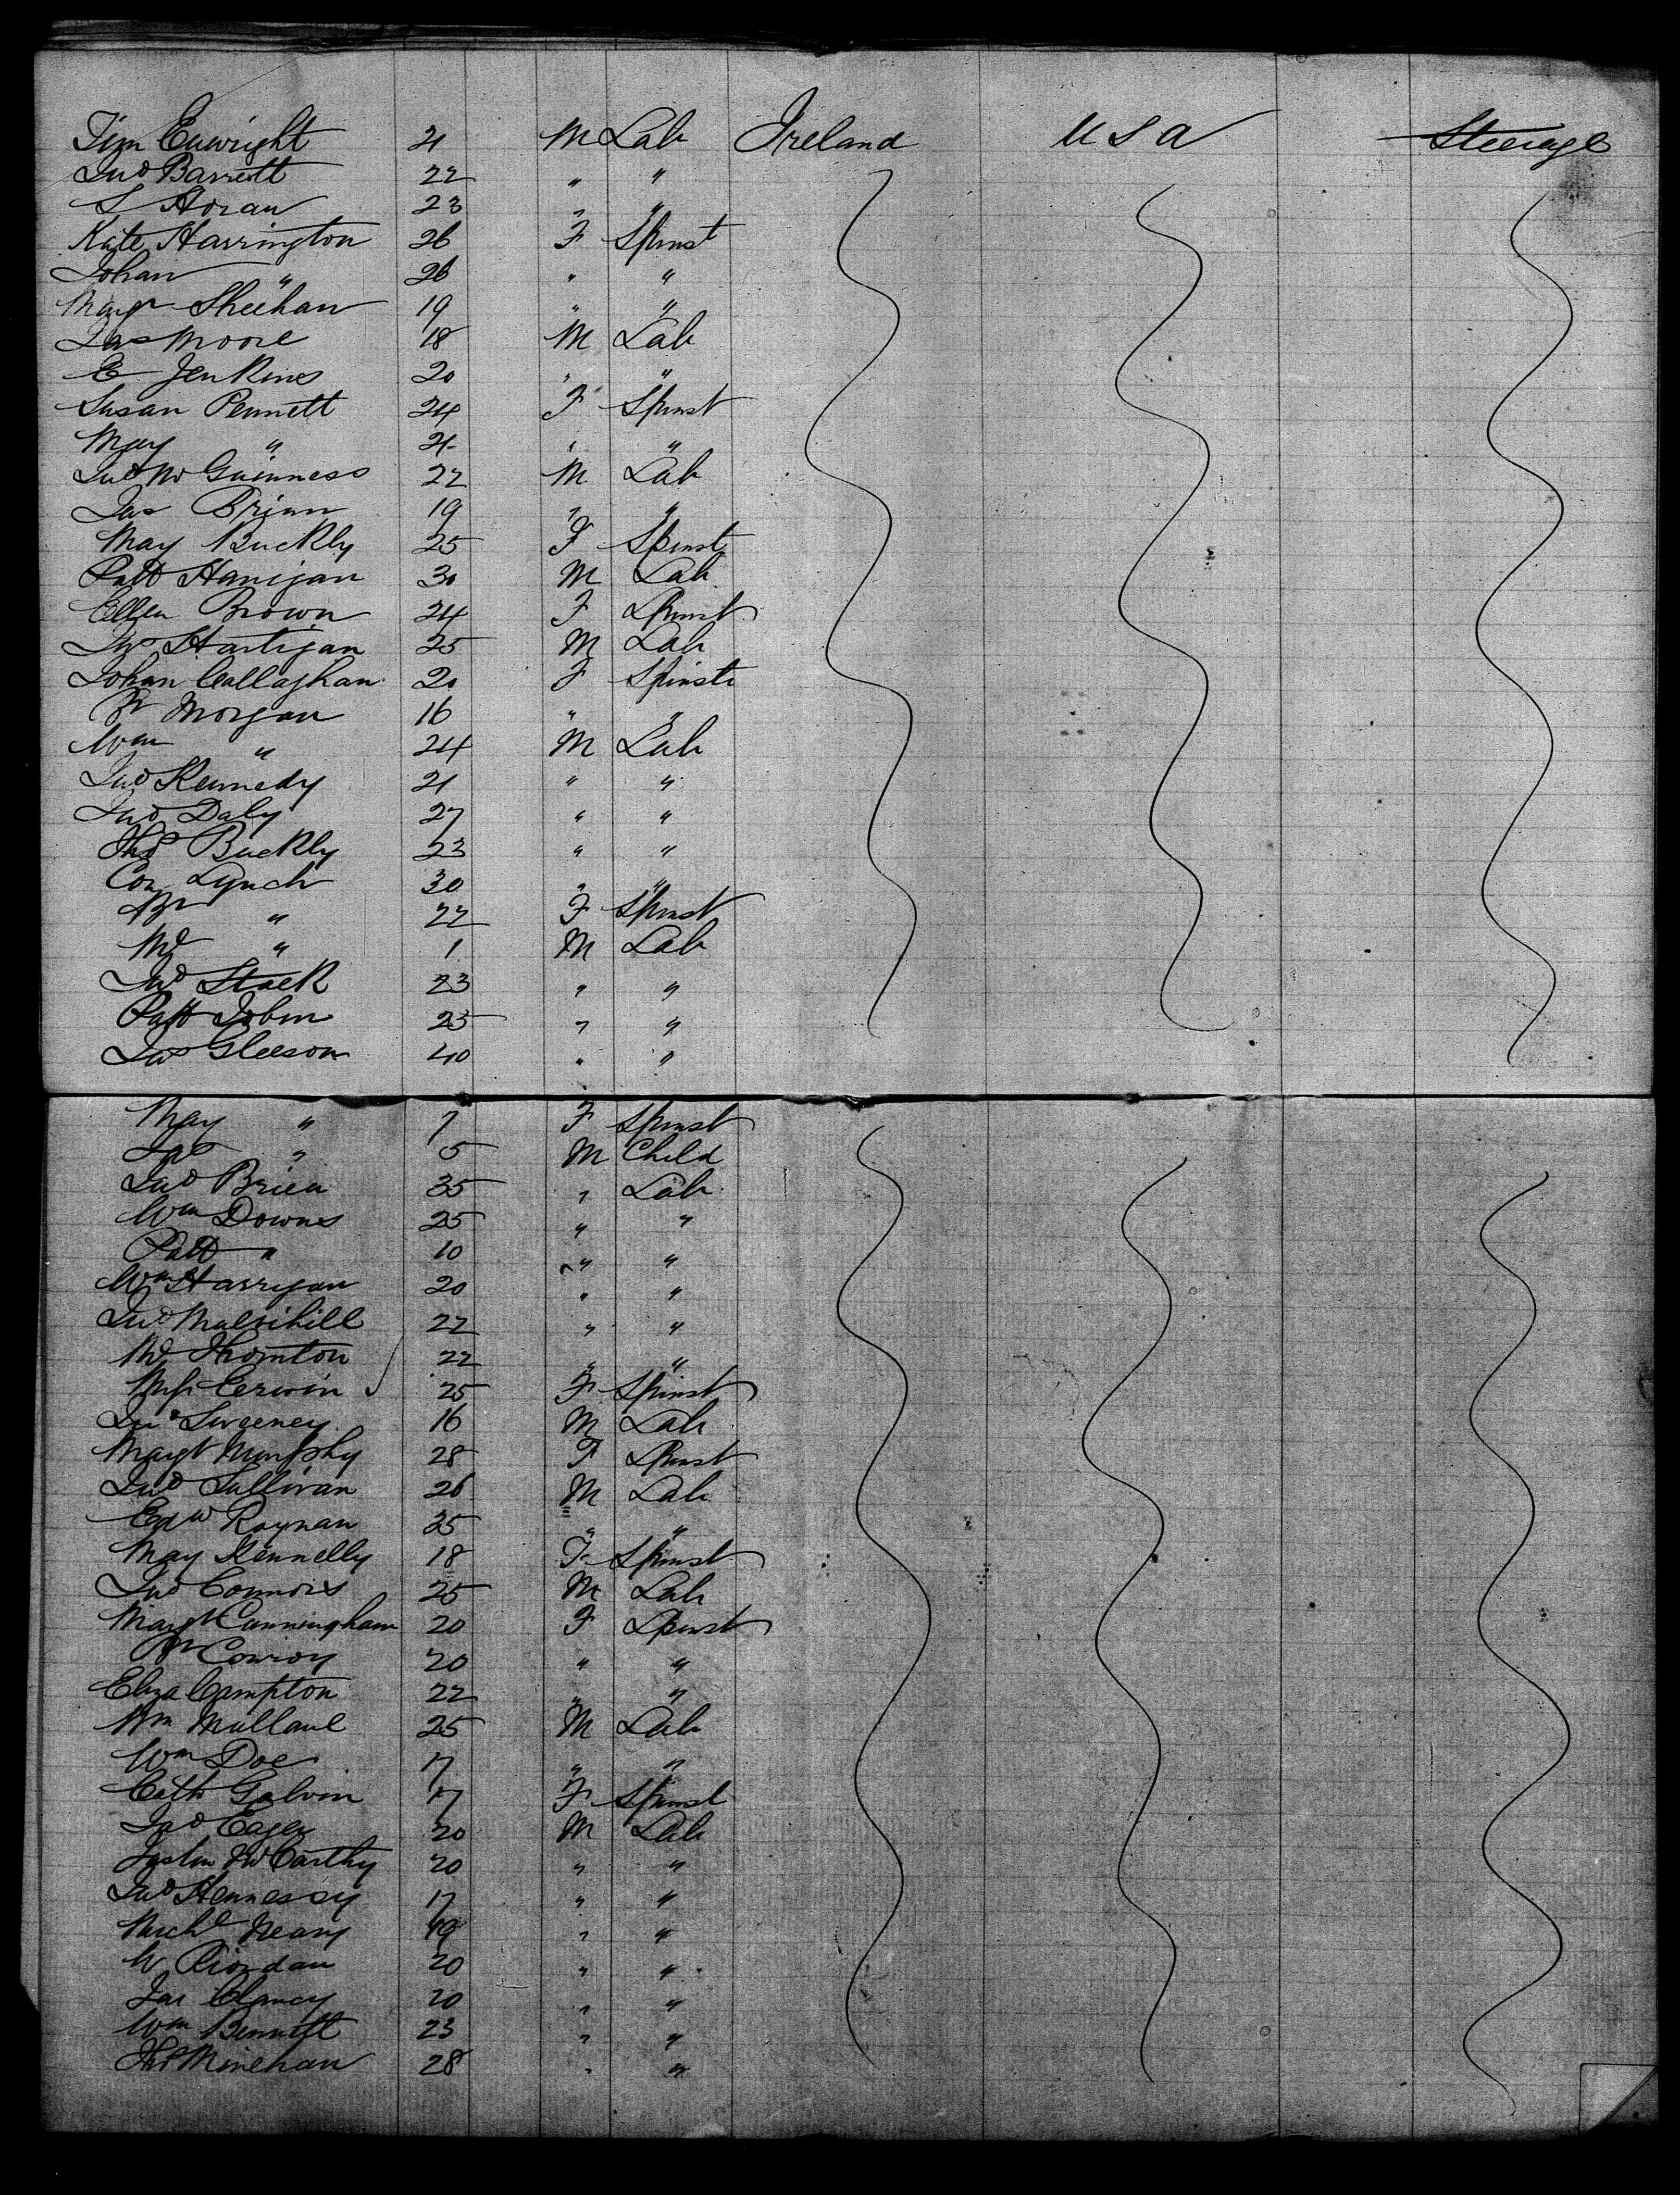 Tim Enright 21 M Lab Ireland USA Steerage
Jno Barrett 22 " "
S Horan 23 " "
Kate Harrington 26 F Spinst
Johan " 26 " "
Margt Sheehan 19 " "
Jas Moore 18 M Lab
E Jenkins 20 " "
Susan Pennett 24 F Spinst
May " 21 " "
Jno Mc Guinness 22 M Lab
Jas Brian 19 " "
May Buckly 25 F Spinst
Patt Hanigan 30 M Lab
Ellen Brown 24 F Spinst
Jno Hartigan 25 M Lab
Johan Callaghan 20 F Spinst
Bt Morgan 16 " "
Wm " 24 M Lab
Jno Kennedy 21 " "
Jno Daly 27 " "
Thos Buckly 23 " "
Con Lynch 30 " "
Bt " 22 F Spinst
Ml " 1 M Lab
Jno Stack 23 " "
Patt Tobin 25 " "
Jas Gleeson 40 " "
May " 7 F Spinst
Jas " 5 M Child
Jno Brien 35 " Lab
Wm Downes 25 " "
Patt " 10 " "
Wm Harrigan 20 " "
Jno Mulvihill 22 " "
Ml Thornton 22 " "
Cerwin 25 F Spinst
Jno Sweeney 16 M Lab
Margt Murphy 28 F Spinst
Jno Sullivan 26 M Lab
Edw Roynan 35 " "
May Kennelly 18 F Spinst
Jno Connors 25 M Lab
Margt Cunningham 20 F Spinst
Bt Conroy 20 " "
Eliza Campton 22 " "
Wm Mullane 25 M Lab
Wm Doe 17 " "
Cath Galvin 17 F Spinst
Jno Eagen 20 M Lab
Justin McCarthy 20 " "
Jno Hennessy 17 " "
Michl Neary 19 " "
W Riordan 20 " "
Jas Clancy 20 " "
Wm Bennett 23 " "
Thos Minehan 28 " "